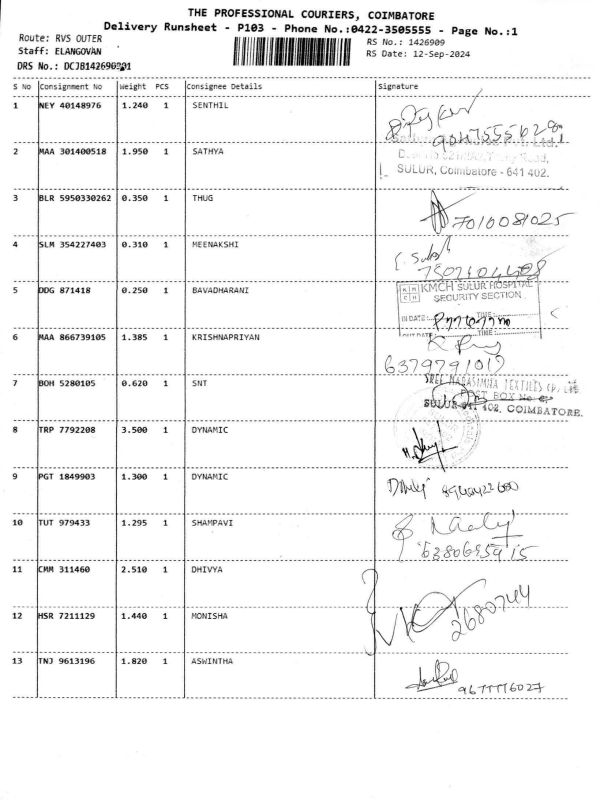 THE PROFESSIONAL COURIERS, COIMBATORE
Delivery Runsheet - P103 - Phone No.:0422-3505555 - Page No.:1
Route: RVS OUTER
RS No.: 1426909
Staff: ELANGOVAN
RS Date: 12-Sep-2024
DRS No.: DCJB142690901
S No Consignment No Weight PCS Consignee Details Signature
1 NEY 40148976 1.240 1 SENTHIL
2 MAA 301400518 1.950 1 SATHYA
SULUR, Coimbatore - 641 402.
3 BLR 5950330262 0.350 1 THUG
7010081025
4 SLM 354227403 0.310 1 MEENAKSHI
5 DDG 871418 0.250 1 BAVADHARANI
KMCH SULUR HOSPITAL
SECURITY SECTION
IN DATE: TIME:
OUT DATE: TIME:
6 MAA 866739105 1.385 1 KRISHNAPRIYAN
7 BOH 5280105 0.620 1 SNT
SREE NARASIMHA TEXTILES
POST BOX No
402, COIMBATORE.
8 TRP 7792208 3.500 1 DYNAMIC
9 PGT 1849903 1.300 1 DYNAMIC
10 TUT 979433 1.295 1 SHAMPAVI
11 CMM 311460 2.510 1 DHIVYA
12 HSR 7211129 1.440 1 MONISHA
2680744
13 TNJ 9613196 1.820 1 ASWINTHA